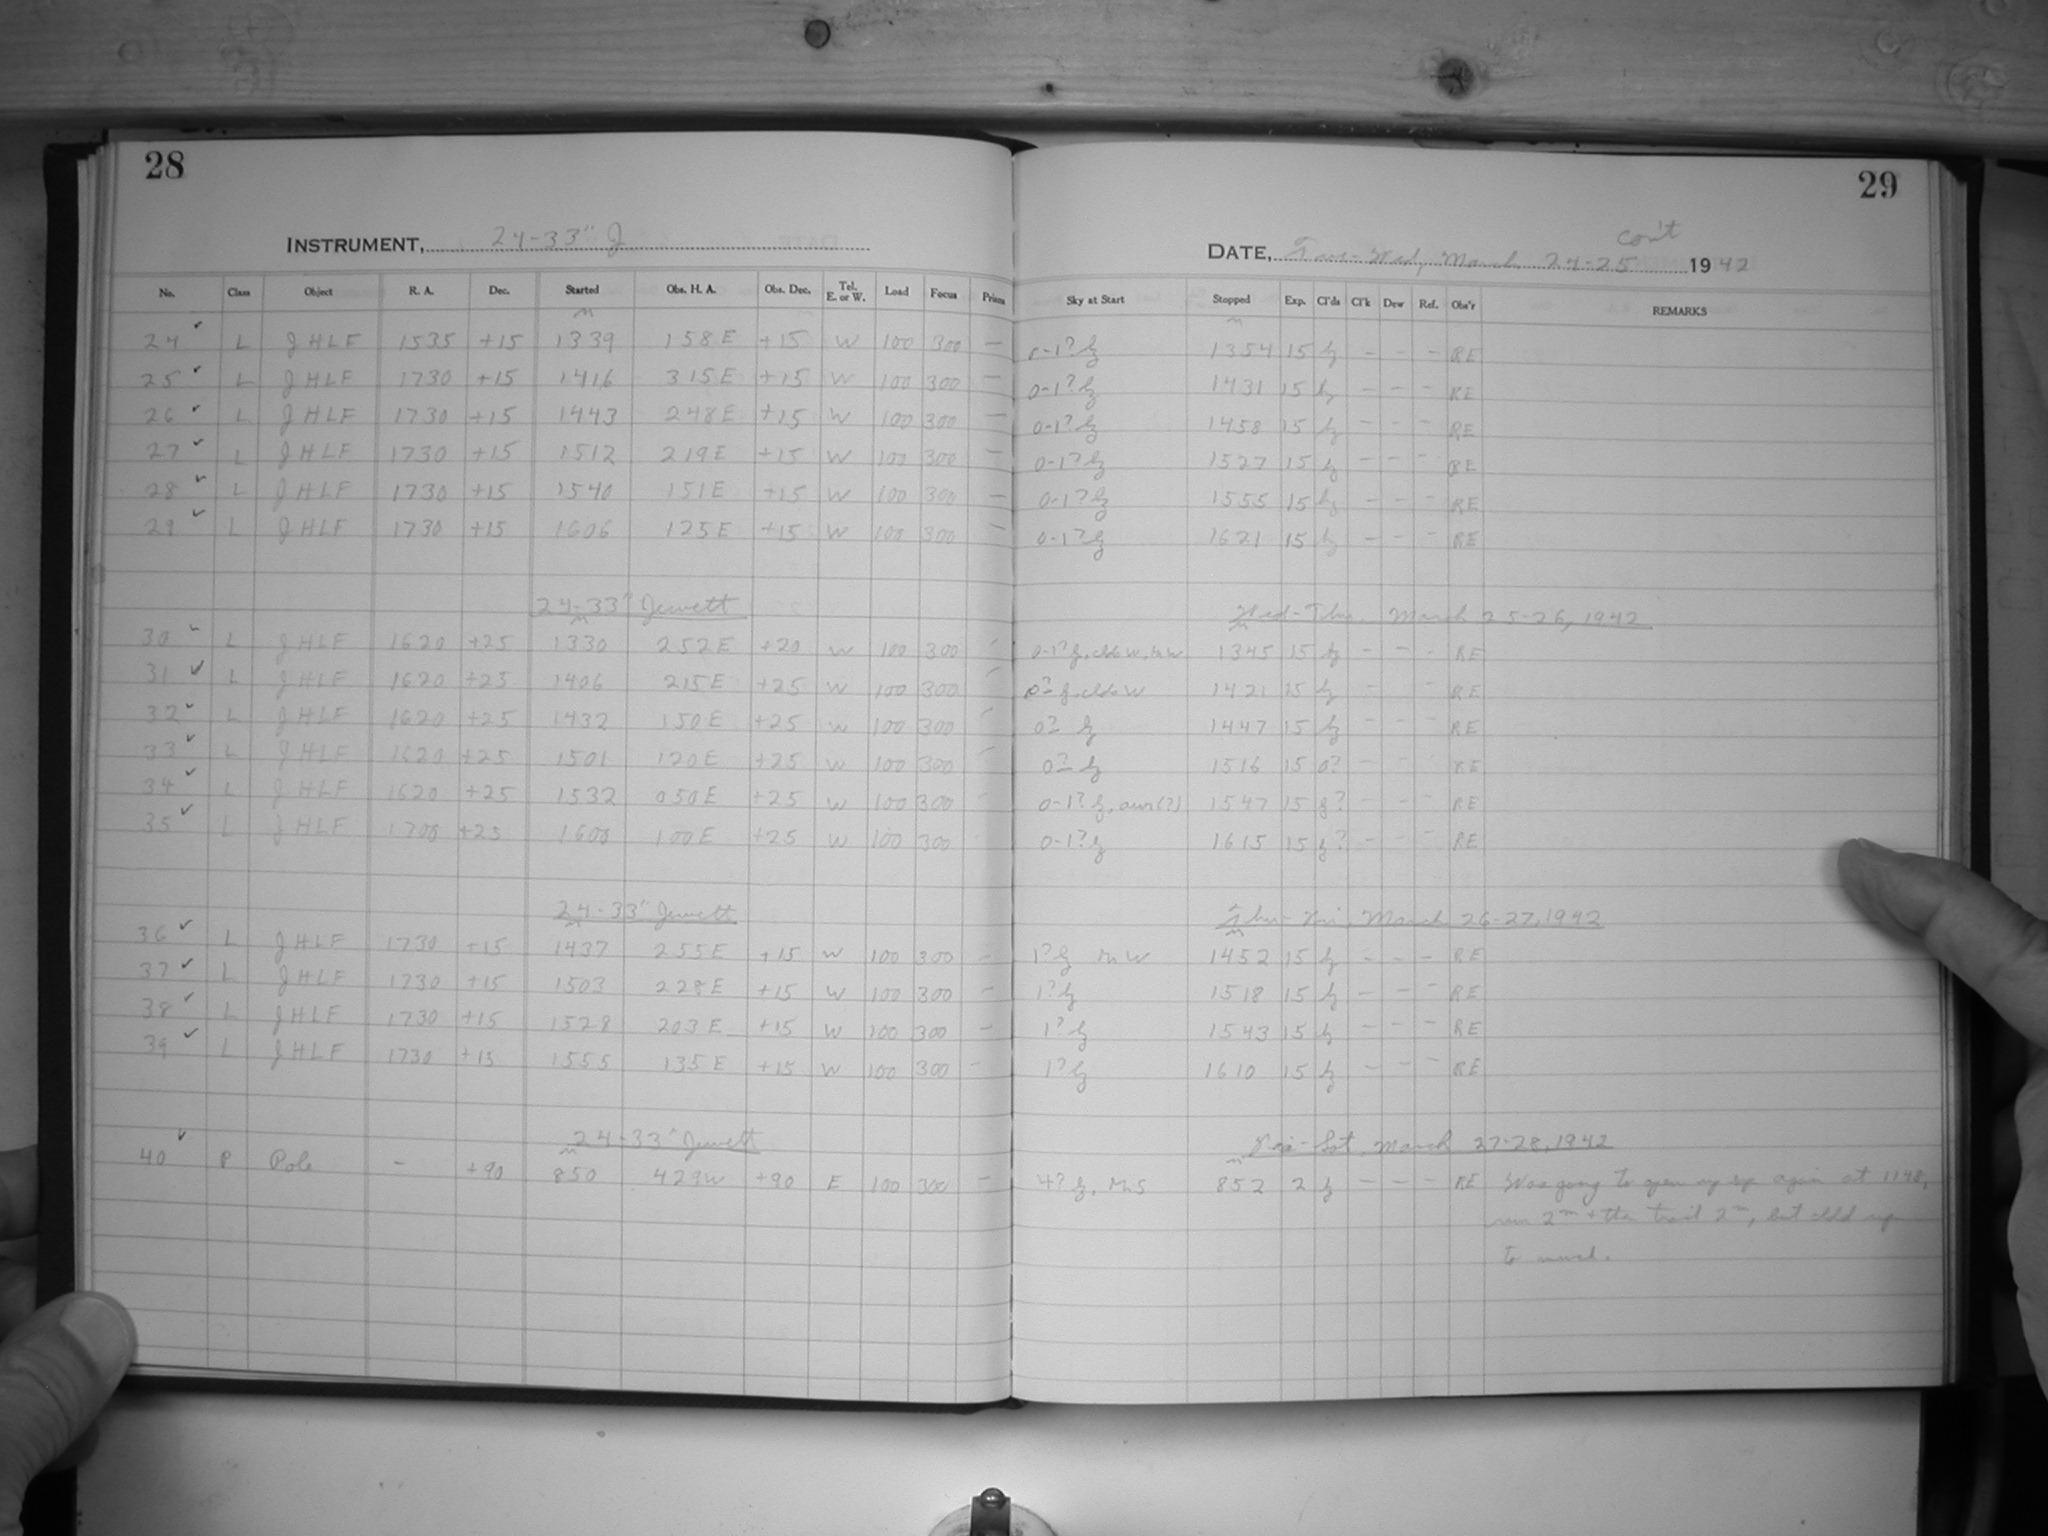 28
29
INSTRUMENT, 24-33" J
DATE, Tues-Wed, March 24-25 con't 1942
No. Class Object R. A. Dec. Started Obs. H. A. Obs. Dec. Tel. E. or W. Load Focus Prism Sky at Start Stopped Exp. Cl'ds Cl'k Dew Ref. Obs'r REMARKS
24 ✓ L JHLF 1535 +15 1339 158E +15 W 100 300 — 0-1? 1354 15 - - - RE
25 ✓ L JHLF 1730 +15 1416 315E +15 W 100 300 — 0-1? 1431 15 - - - RE
26 ✓ L JHLF 1730 +15 1443 248E +15 W 100 300 — 0-1? 1458 15 - - - RE
27 ✓ L JHLF 1730 +15 1512 219E +15 W 100 300 — 0-1? 1527 15 - - - RE
28 ✓ L JHLF 1730 +15 1540 151E +15 W 100 300 — 0-1? 1555 15 - - - RE
29 ✓ L JHLF 1730 +15 1606 125E +15 W 100 300 — 0-1? 1621 15 - - - RE
24-33" Jewett Wed-Thu. March 25-26, 1942
30 ✓ L JHLF 1620 +25 1330 252E +20 W 100 300 - 0-1? 1345 15 - - - RE
31 ✓ L JHLF 1620 +25 1406 215E +25 W 100 300 - 0? 1421 15 - - RE
32 ✓ L JHLF 1620 +25 1432 150E +25 W 100 300 - 0? 1447 15 - - - RE
33 ✓ L JHLF 1620 +25 1501 120E +25 W 100 300 - 0? 1516 15 0? - - - RE
34 ✓ L JHLF 1620 +25 1532 050E +25 W 100 300 - 0-1? 1547 15 - - - RE
35 ✓ L JHLF 1700 +25 1600 100E +25 W 100 300 - 0-1? 1615 15 - - - RE
24-33" Jewett Thu-Fri, March 26-27, 1942
36 ✓ L JHLF 1730 +15 1437 255E +15 W 100 300 - 1? 1452 15 - - - RE
37 ✓ L JHLF 1730 +15 1503 228E +15 W 100 300 - 1? 1518 15 - - - RE
38 ✓ L JHLF 1730 +15 1528 203E +15 W 100 300 - 1? 1543 15 - - - RE
39 ✓ L JHLF 1730 +15 1555 135E +15 W 100 300 - 1? 1610 15 - - - RE
24-33" Jewett Fri-Sat, March 27-28, 1942
40 ✓ P Pole - +90 850 429W +90 E 100 300 - 4? 852 2 - - - RE Was going to open up again at 1148,
run 2m + then trail 2m, but cldd up
to much.